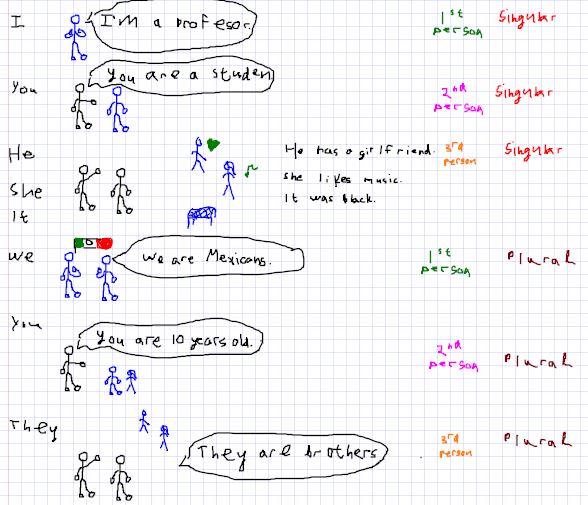 I I'm a profesor. 1st person Singular
You You are a studen 2nd person Singular
He He has a girlfriend. 3rd person Singular
She She likes music.
It It was black.
We We are Mexicans. 1st person Plural
You You are 10 years old. 2nd person Plural
They They are brothers 3rd person Plural